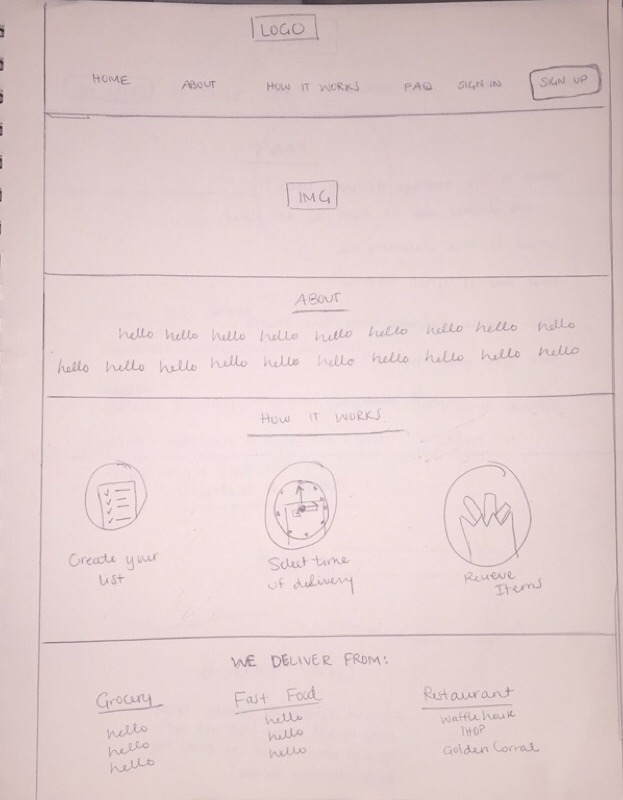 LOGO
HOME ABOUT HOW IT WORKS FAQ SIGN IN SIGN UP
IMG
ABOUT
hello hello hello hello hello hello hello hello hello
hello hello hello hello hello hello hello hello hello hello
HOW IT WORKS
Create your
list
Select time
of delivery
Recieve
Items
WE DELIVER FROM:
Grocery
hello
hello
hello
Fast Food
hello
hello
hello
Restaurant
waffle house
IHOP
Golden Corral